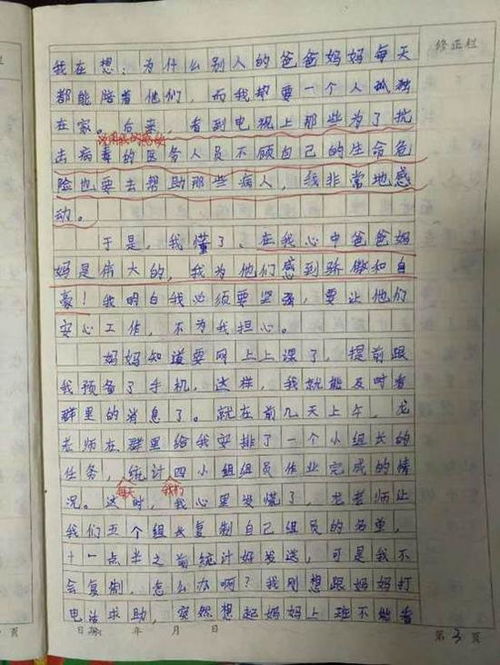 修正栏
我在想：为什么别人的爸爸妈妈每天
都能陪着他们，而我却要一个人孤独
在家。后来，看到电视上那些为了抗
击病毒的医务人员不顾自己的生命危
险也要去帮助那些病人，我非常地感
动。
于是，我懂了、在我心中爸爸妈
妈是伟大的，我为他们感到骄傲和自
豪！我明白我必须要坚强，要让他们
安心工作，不为我担心。
妈妈知道要网上上课了，提前跟
我预备了手机，这样，我就能及时看
群里的消息了。就在前几天上午，龙
老师在群里给我安排了一个小组长的
任务，统计四小组组员作业完成的情
每天 我们
况。这时，我心里发慌了，龙老师让
我们五个组长复制自己组员的名单，
十一点半之前统计好发送，可是我不
会复制，怎么办啊？我刚想跟妈妈打
电话求助，突然想起妈妈上班不能看
日期: 年 月 日 第 3 页